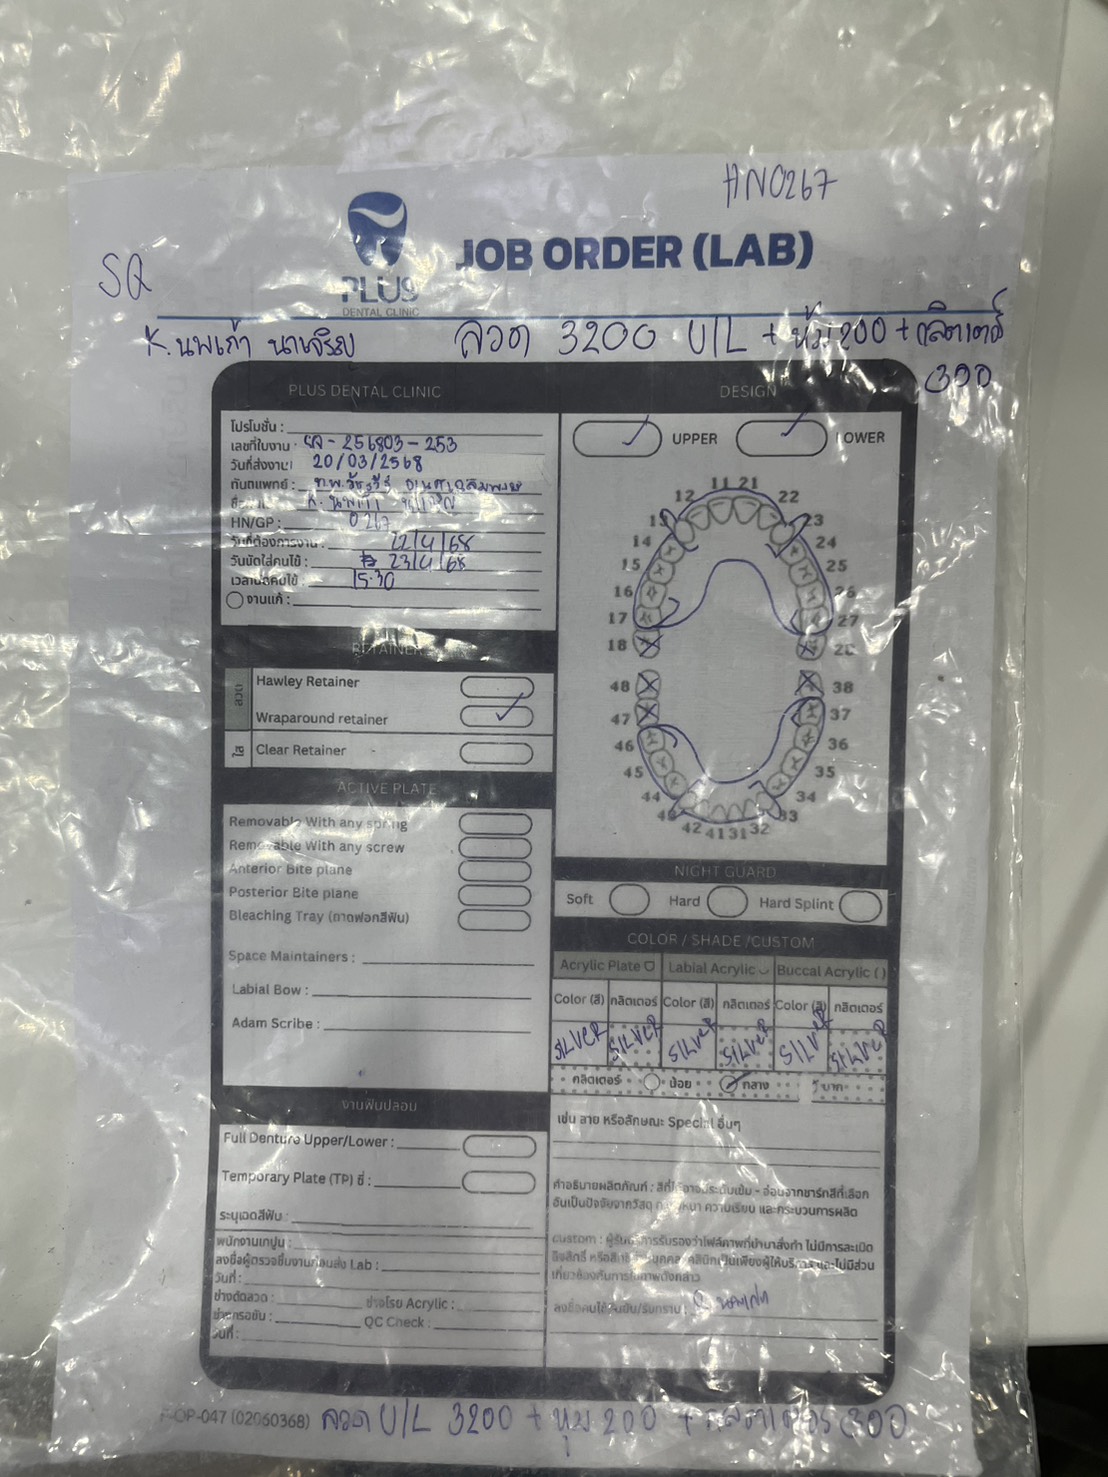 HN0267
PLUS
DENTAL CLINIC
JOB ORDER (LAB)
SQ
K. นพเก้า นาเจริญ ลวด 3200 U/L + หุ้ม 200 + กลิตเตอร์ 300
PLUS DENTAL CLINIC
โปรโมชั่น :
เลขที่ใบงาน : SQ - 256803 - 253
วันที่ส่งงาน : 20/03/2568
ทันตแพทย์ : ท.พ.
K. นพเก้า นาเจริญ
HN/GP : 0267
วันที่ต้องการงาน : 22/4/68
วันนัดใส่คนไข้ : 23/4/68
15.30
งานแก้ :
RETAINER
ลวด
Hawley Retainer
Wraparound retainer
ใส
Clear Retainer
ACTIVE PLATE
Removable With any spring
Removable With any screw
Anterior Bite plane
Posterior Bite plane
Bleaching Tray (ถาดฟอกสีฟัน)
Space Maintainers :
Labial Bow :
Adam Scribe :
งานฟันปลอม
Full Denture Upper/Lower :
Temporary Plate (TP) ซี่ :
ระบุเฉดสีฟัน :
พนักงานเทปูน :
ลงชื่อผู้ตรวจชิ้นงานก่อนส่ง Lab :
วันที่ :
ช่างดัดลวด : ช่างโรย Acrylic :
ช่างกรอขัด : QC Check :
วันที่ :
DESIGN
UPPER LOWER
11 21
12 22
13 23
14 24
15 25
16 26
17 27
18 28
48 38
47 37
46 36
45 35
44 34
43 33
42 41 31 32
NIGHT GUARD
Soft Hard Hard Splint
COLOR / SHADE /CUSTOM
Acrylic Plate Labial Acrylic Buccal Acrylic ( )
Color (สี) กลิตเตอร์ Color (สี) กลิตเตอร์ Color (สี) กลิตเตอร์
SILVER SILVER SILVER SILVER SILVER SILVER
กลิตเตอร์ น้อย กลาง มาก
เช่น ลาย หรือลักษณะ Special อื่นๆ
คำอธิบายผลิตภัณฑ์ : สีที่ได้อาจมีระดับเข้ม - อ่อนจากชาร์กสีที่เลือก
อันเป็นปัจจัยจากวัสดุ ความหนา ความเรียบ และกระบวนการผลิต
custom : ผู้รับบริการรับรองว่าไฟล์ภาพที่นำมาสั่งทำ ไม่มีการละเมิด
ลิขสิทธิ์ หรือสิทธิของบุคคล คลินิกเป็นเพียงผู้ให้บริการ และไม่มีส่วน
เกี่ยวข้องกับการใช้ภาพดังกล่าว
ลงชื่อคนไข้ยืนยัน/รับทราบ : นพเก้า
F-OP-047 (02060368) ลวด U/L 3200 + หุ้ม 200 + กลิตเตอร์ 300